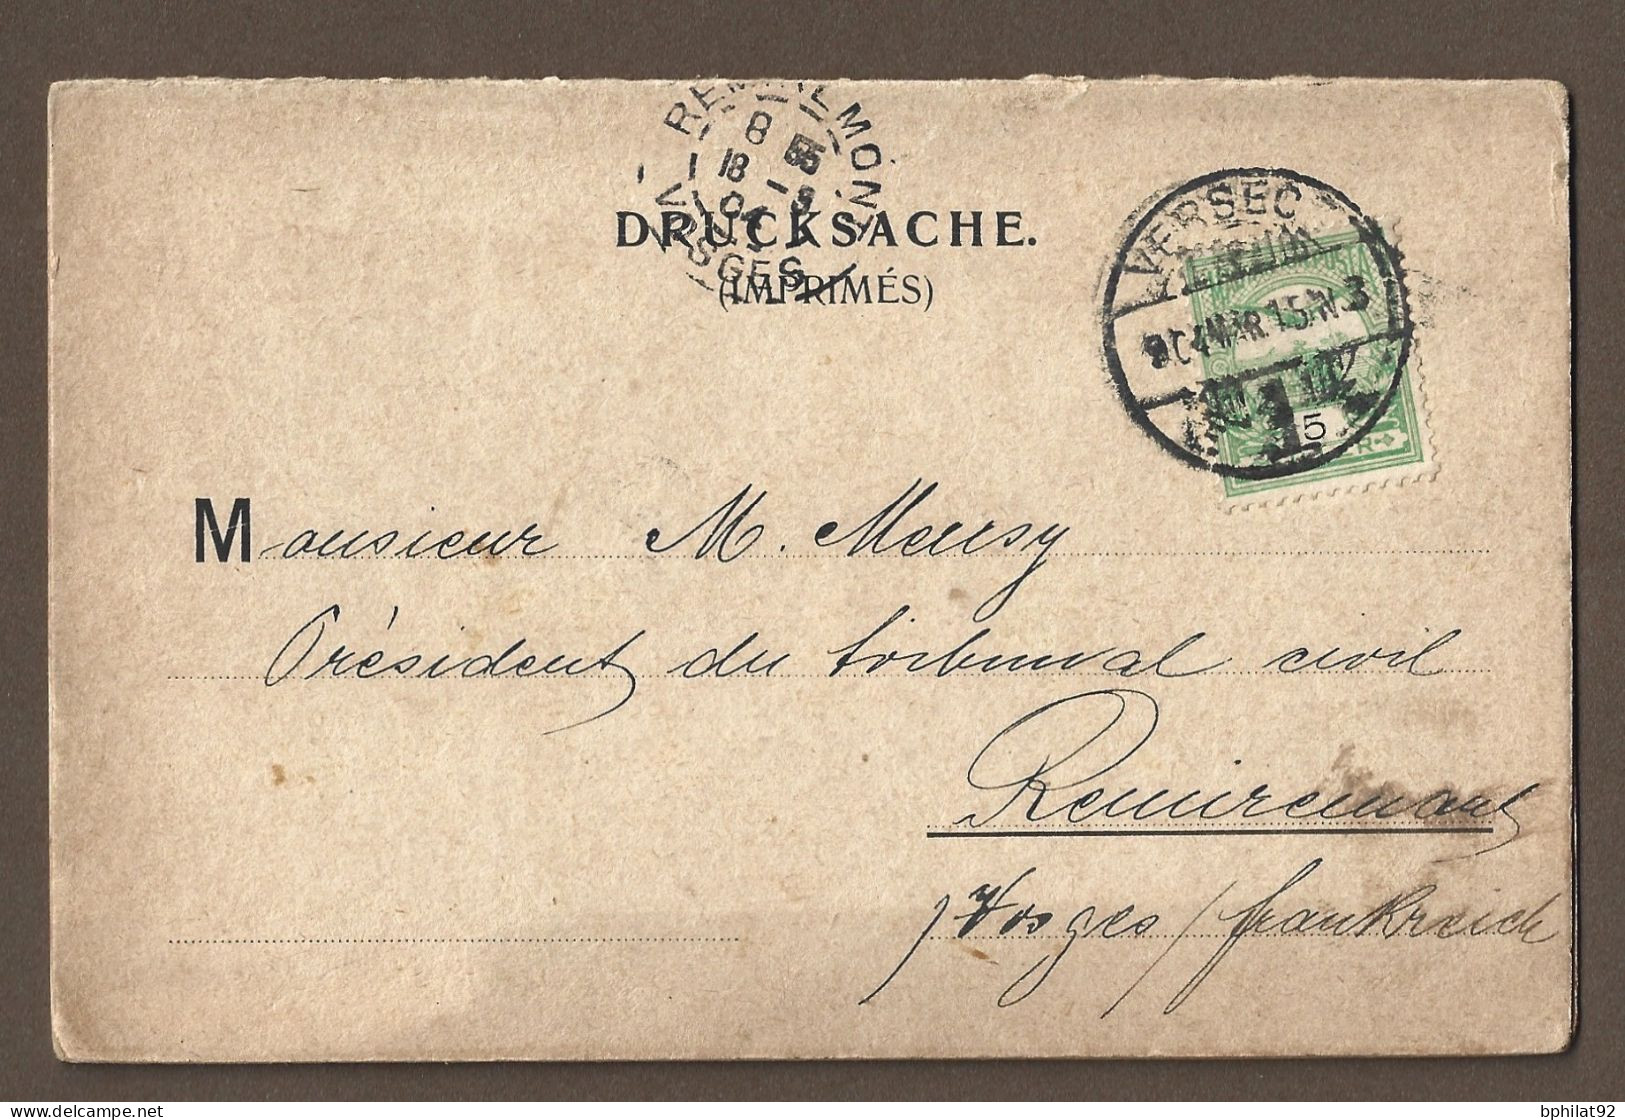 REMIREMONT
8
18
04
VOSGES
DRUCKSACHE.
(IMPRIMÉS)
VERSEC
904 MAR 15 N 3
5
Monsieur M. Mausy
Président du tribunal civil
Remiremont
/Vosges/ Frankreich
bphilat92